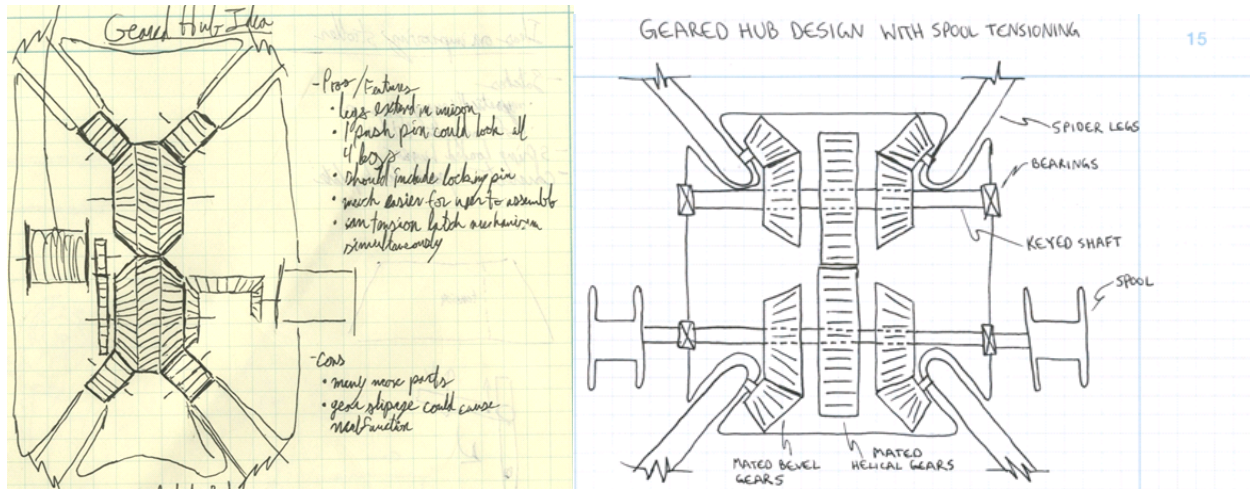 Geared Hub Idea
- Pros/Features
• legs extend in unison
• 1 push pin could lock all
4 legs
• should include locking pin
• much easier for user to assemble
• can tension latch mechanism
simultaneously
- Cons
• many more parts
• gear slipage could cause
malfunction
GEARED HUB DESIGN WITH SPOOL TENSIONING
15
SPIDER LEGS
BEARINGS
KEYED SHAFT
SPOOL
MATED BEVEL
GEARS
MATED
HELICAL GEARS